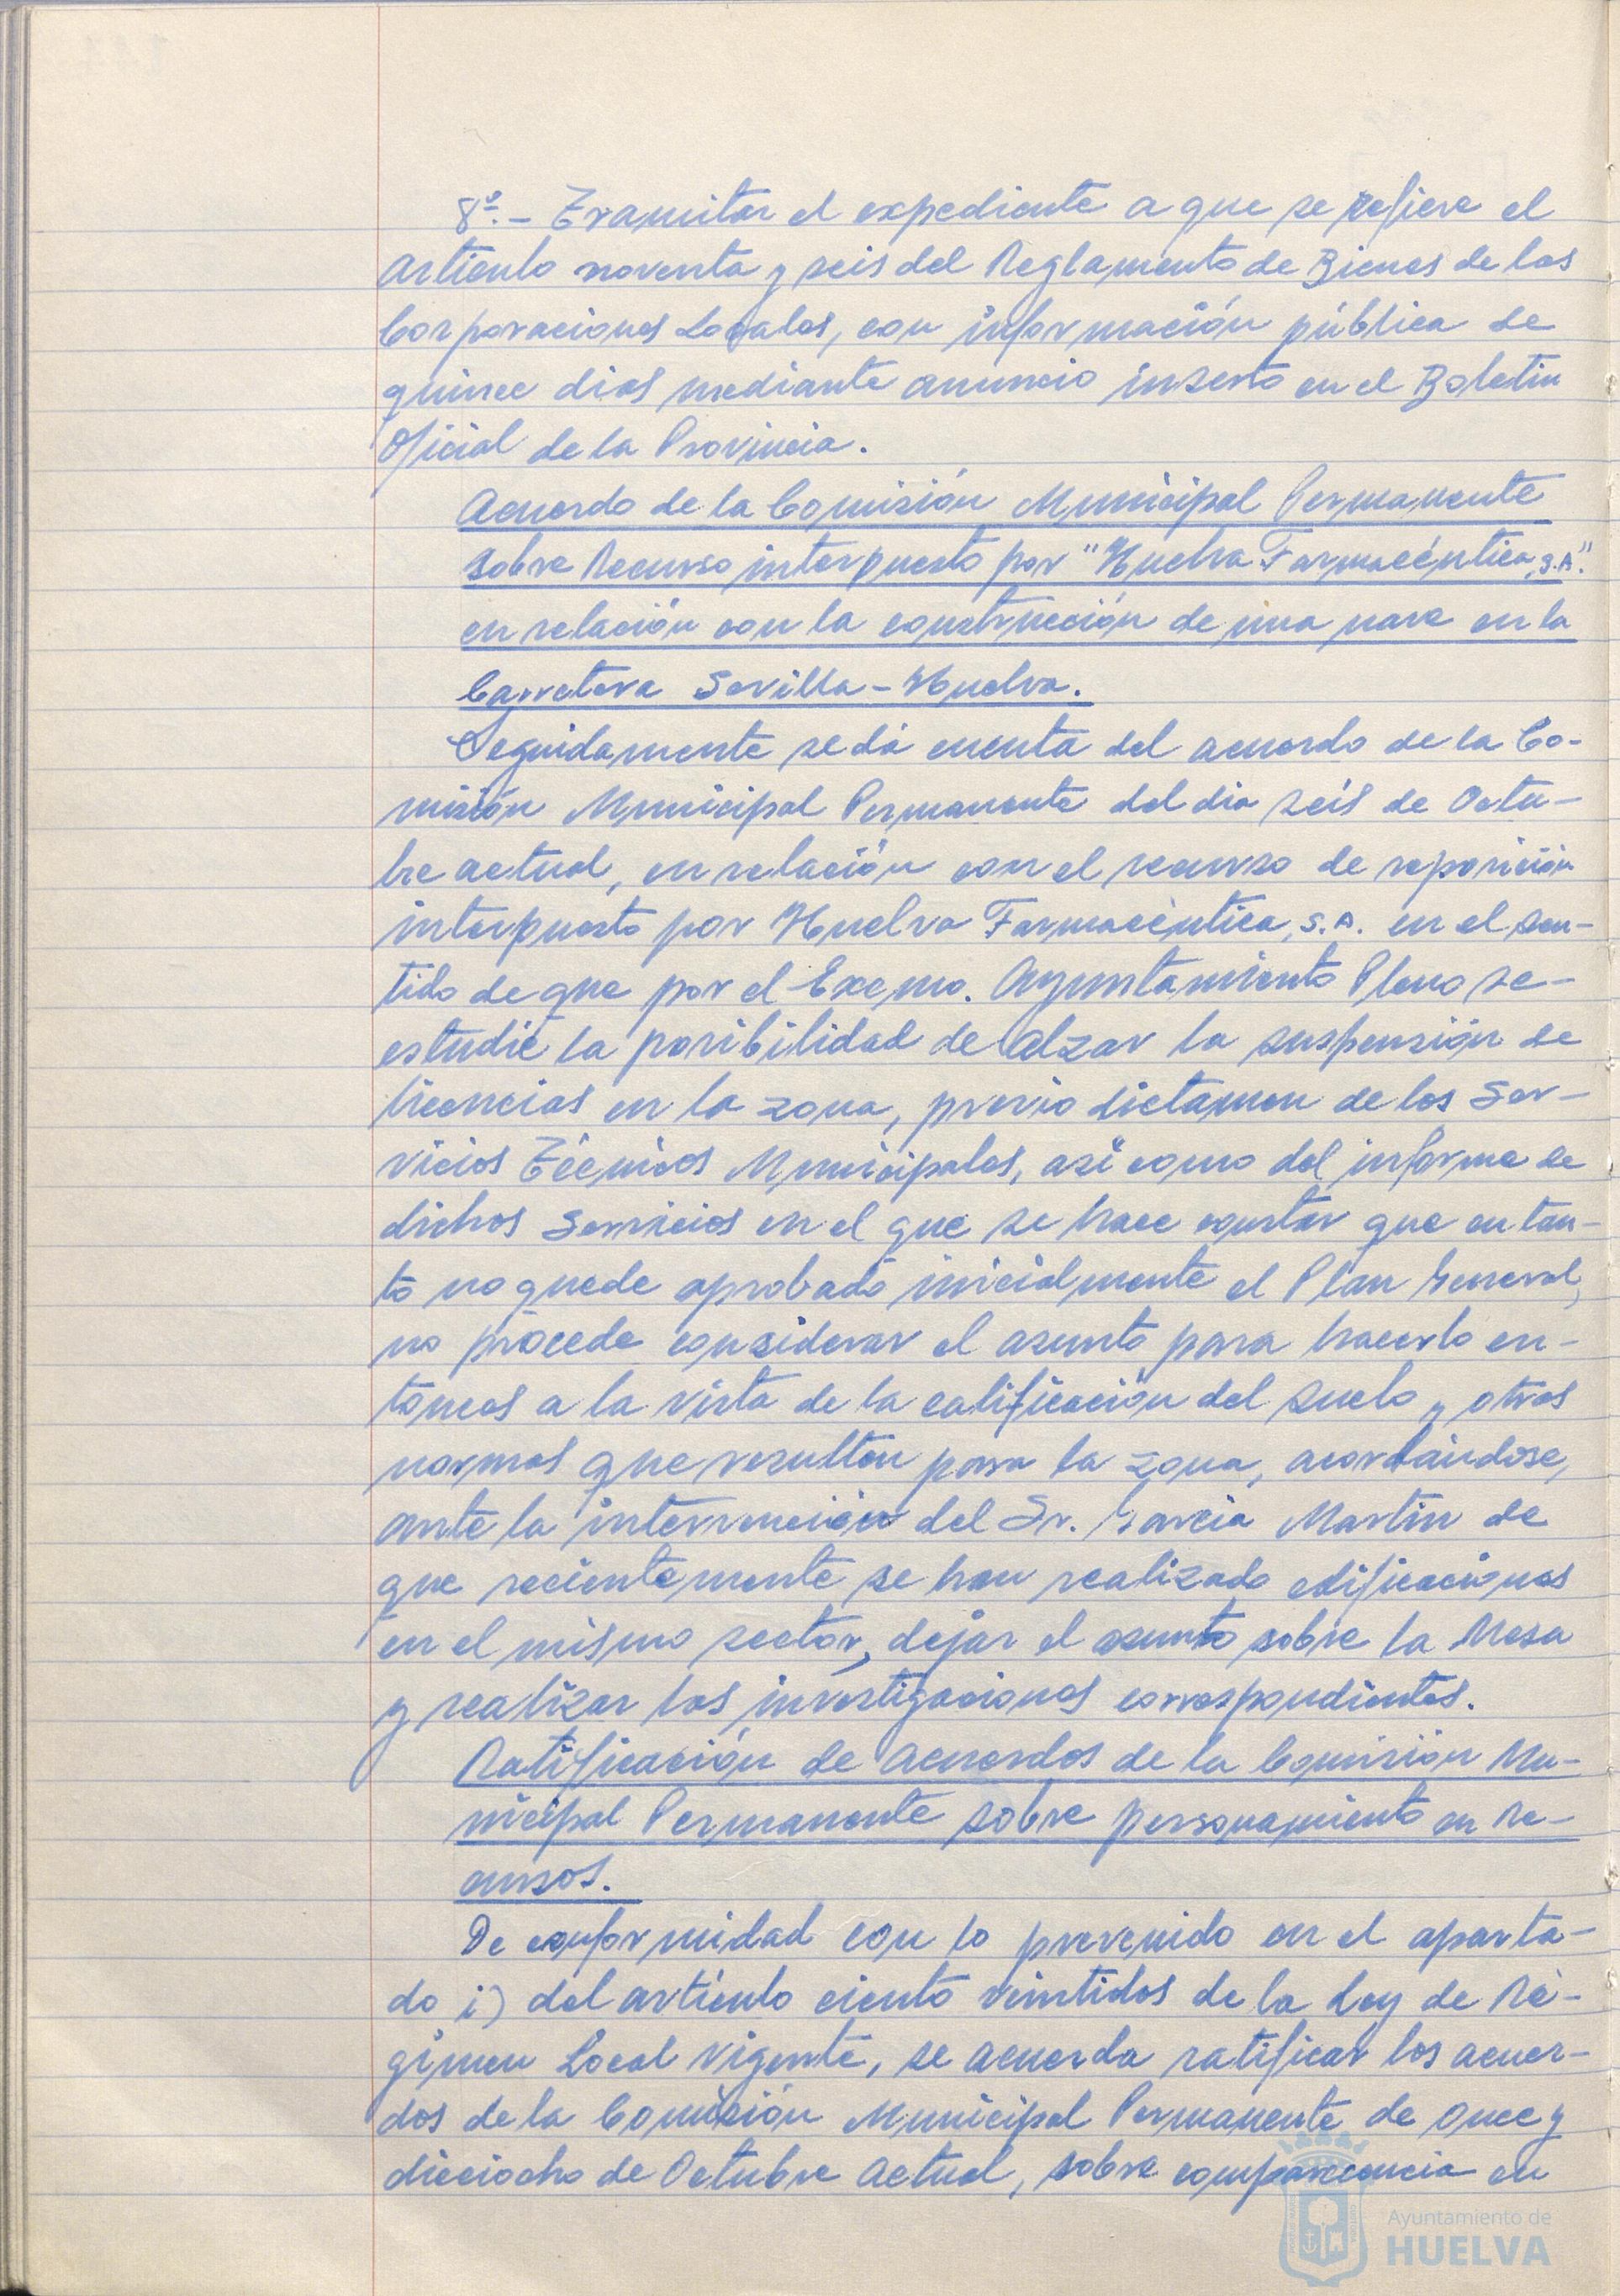 8º.- Tramitar el expediente a que se refiere el
artículo noventa y seis del Reglamento de Bienes de las
Corporaciones Locales, con información pública de
quince dias mediante anuncio inserto en el Boletin
Oficial de la Provincia.
Acuerdo de la Comisión Municipal Permanente
sobre Recurso interpuesto por "Huelva Farmacéutica, S.A."
en relación con la construcción de una nave en la
Carretera Sevilla-Huelva.
Seguidamente se dá cuenta del acuerdo de la Co-
misión Municipal Permanente del dia seis de Octu-
bre actual, en relación con el recurso de reposición
interpuesto por Huelva Farmacéutica, S.A. en el sen-
tido de que por el Excmo. Ayuntamiento Pleno se-
estudie la posibilidad de alzar la suspensión de
licencias en la zona, previo dictamen de los Ser-
vicios Técnicos Municipales, asi como del informe de
dichos Servicios en el que se hace constar que en tan-
to no quede aprobado inicialmente el Plan General,
no procede considerar el asunto para hacerlo en-
tonces a la vista de la calificación del suelo y otras
normas que resulten para la zona, acordándose,
ante la intervención del Sr. García Martín de
que recientemente se han realizado edificaciones
en el mismo sector, dejar el asunto sobre la Mesa
y realizar las investigaciones correspondientes.
Ratificación de acuerdos de la Comisión Mu-
nicipal Permanente sobre personamiento en Re-
cursos.
De conformidad con lo prevenido en el aparta-
do i) del artículo ciento veintidos de la Ley de Ré-
gimen Local vigente, se acuerda ratificar los acuer-
dos de la Comisión Municipal Permanente de once y
dieciocho de Octubre actual, sobre comparecencia en
Ayuntamiento de
HUELVA